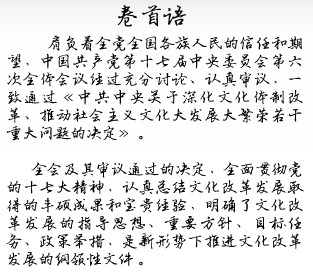 卷首语
肩负着全党全国各族人民的信任和期
望，中国共产党第十七届中央委员会第六
次全体会议经过充分讨论、认真审议，一
致通过《中共中央关于深化文化体制改
革、推动社会主义文化大发展大繁荣若干
重大问题的决定》。
全会及其审议通过的决定，全面贯彻党
的十七大精神，认真总结文化改革发展取
得的丰硕成果和宝贵经验，明确了文化改
革发展的指导思想、重要方针、目标任
务、政策举措，是新形势下推进文化改革
发展的纲领性文件。